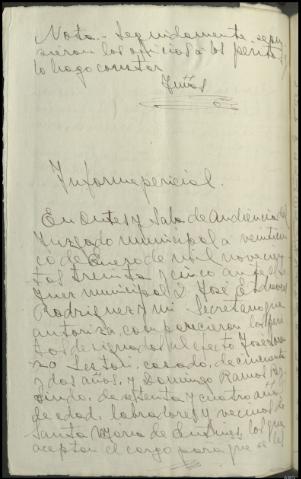 Nota.- Seguidamente se pu
sieron los oficios a los peritos
lo hago constar
Informe pericial.
En Outes y Sala de Audiencia del
Juzgado municipal a veinticin
co de Enero de mil novecien
tos treinta y cinco ante el
Juez municipal D. José
Rodriguez y mi Secretario que
autoriza, comparecieron los peri
tos designados al efecto José
Lestón, casado, de cincuenta
y dos años, y Domingo Ramos
de sesenta y cuatro años
de edad, labradores y vecinos de
Santa María de los que
aceptan el cargo para que